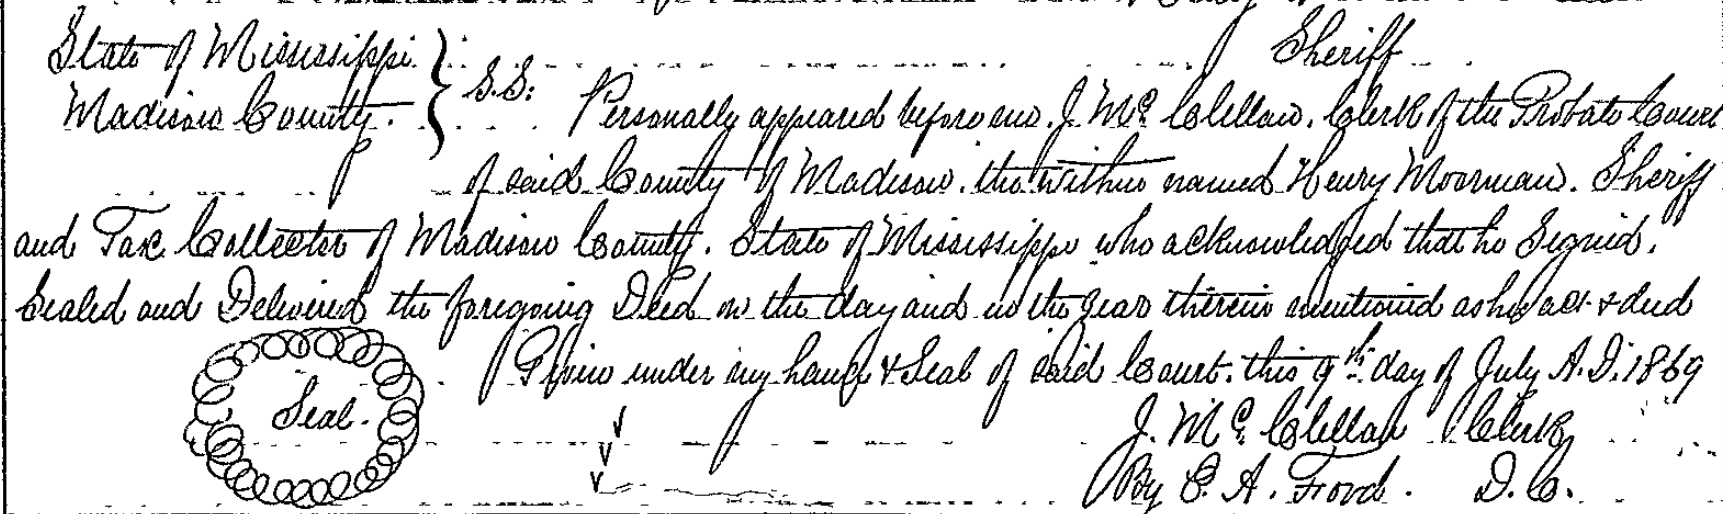 Sheriff
State of Mississippi
Madison County. } S.S: Personally appeared before me. J. Mc. Clellan. Clerk of the Probate Court
of said County of Madison. the within named Henry Moorman. Sheriff
and Tax Collector of Madison County. State of Mississippi who acknowledged that he Signed.
Sealed and Delivered the foregoing Deed on the day and in the year therein mentioned as his act & deed
Given under my hand & Seal of said Court. this 9th day of July A.D. 1869
Seal.
J. Mc. Clellan Clerk
By C. A. Ford. D.C.